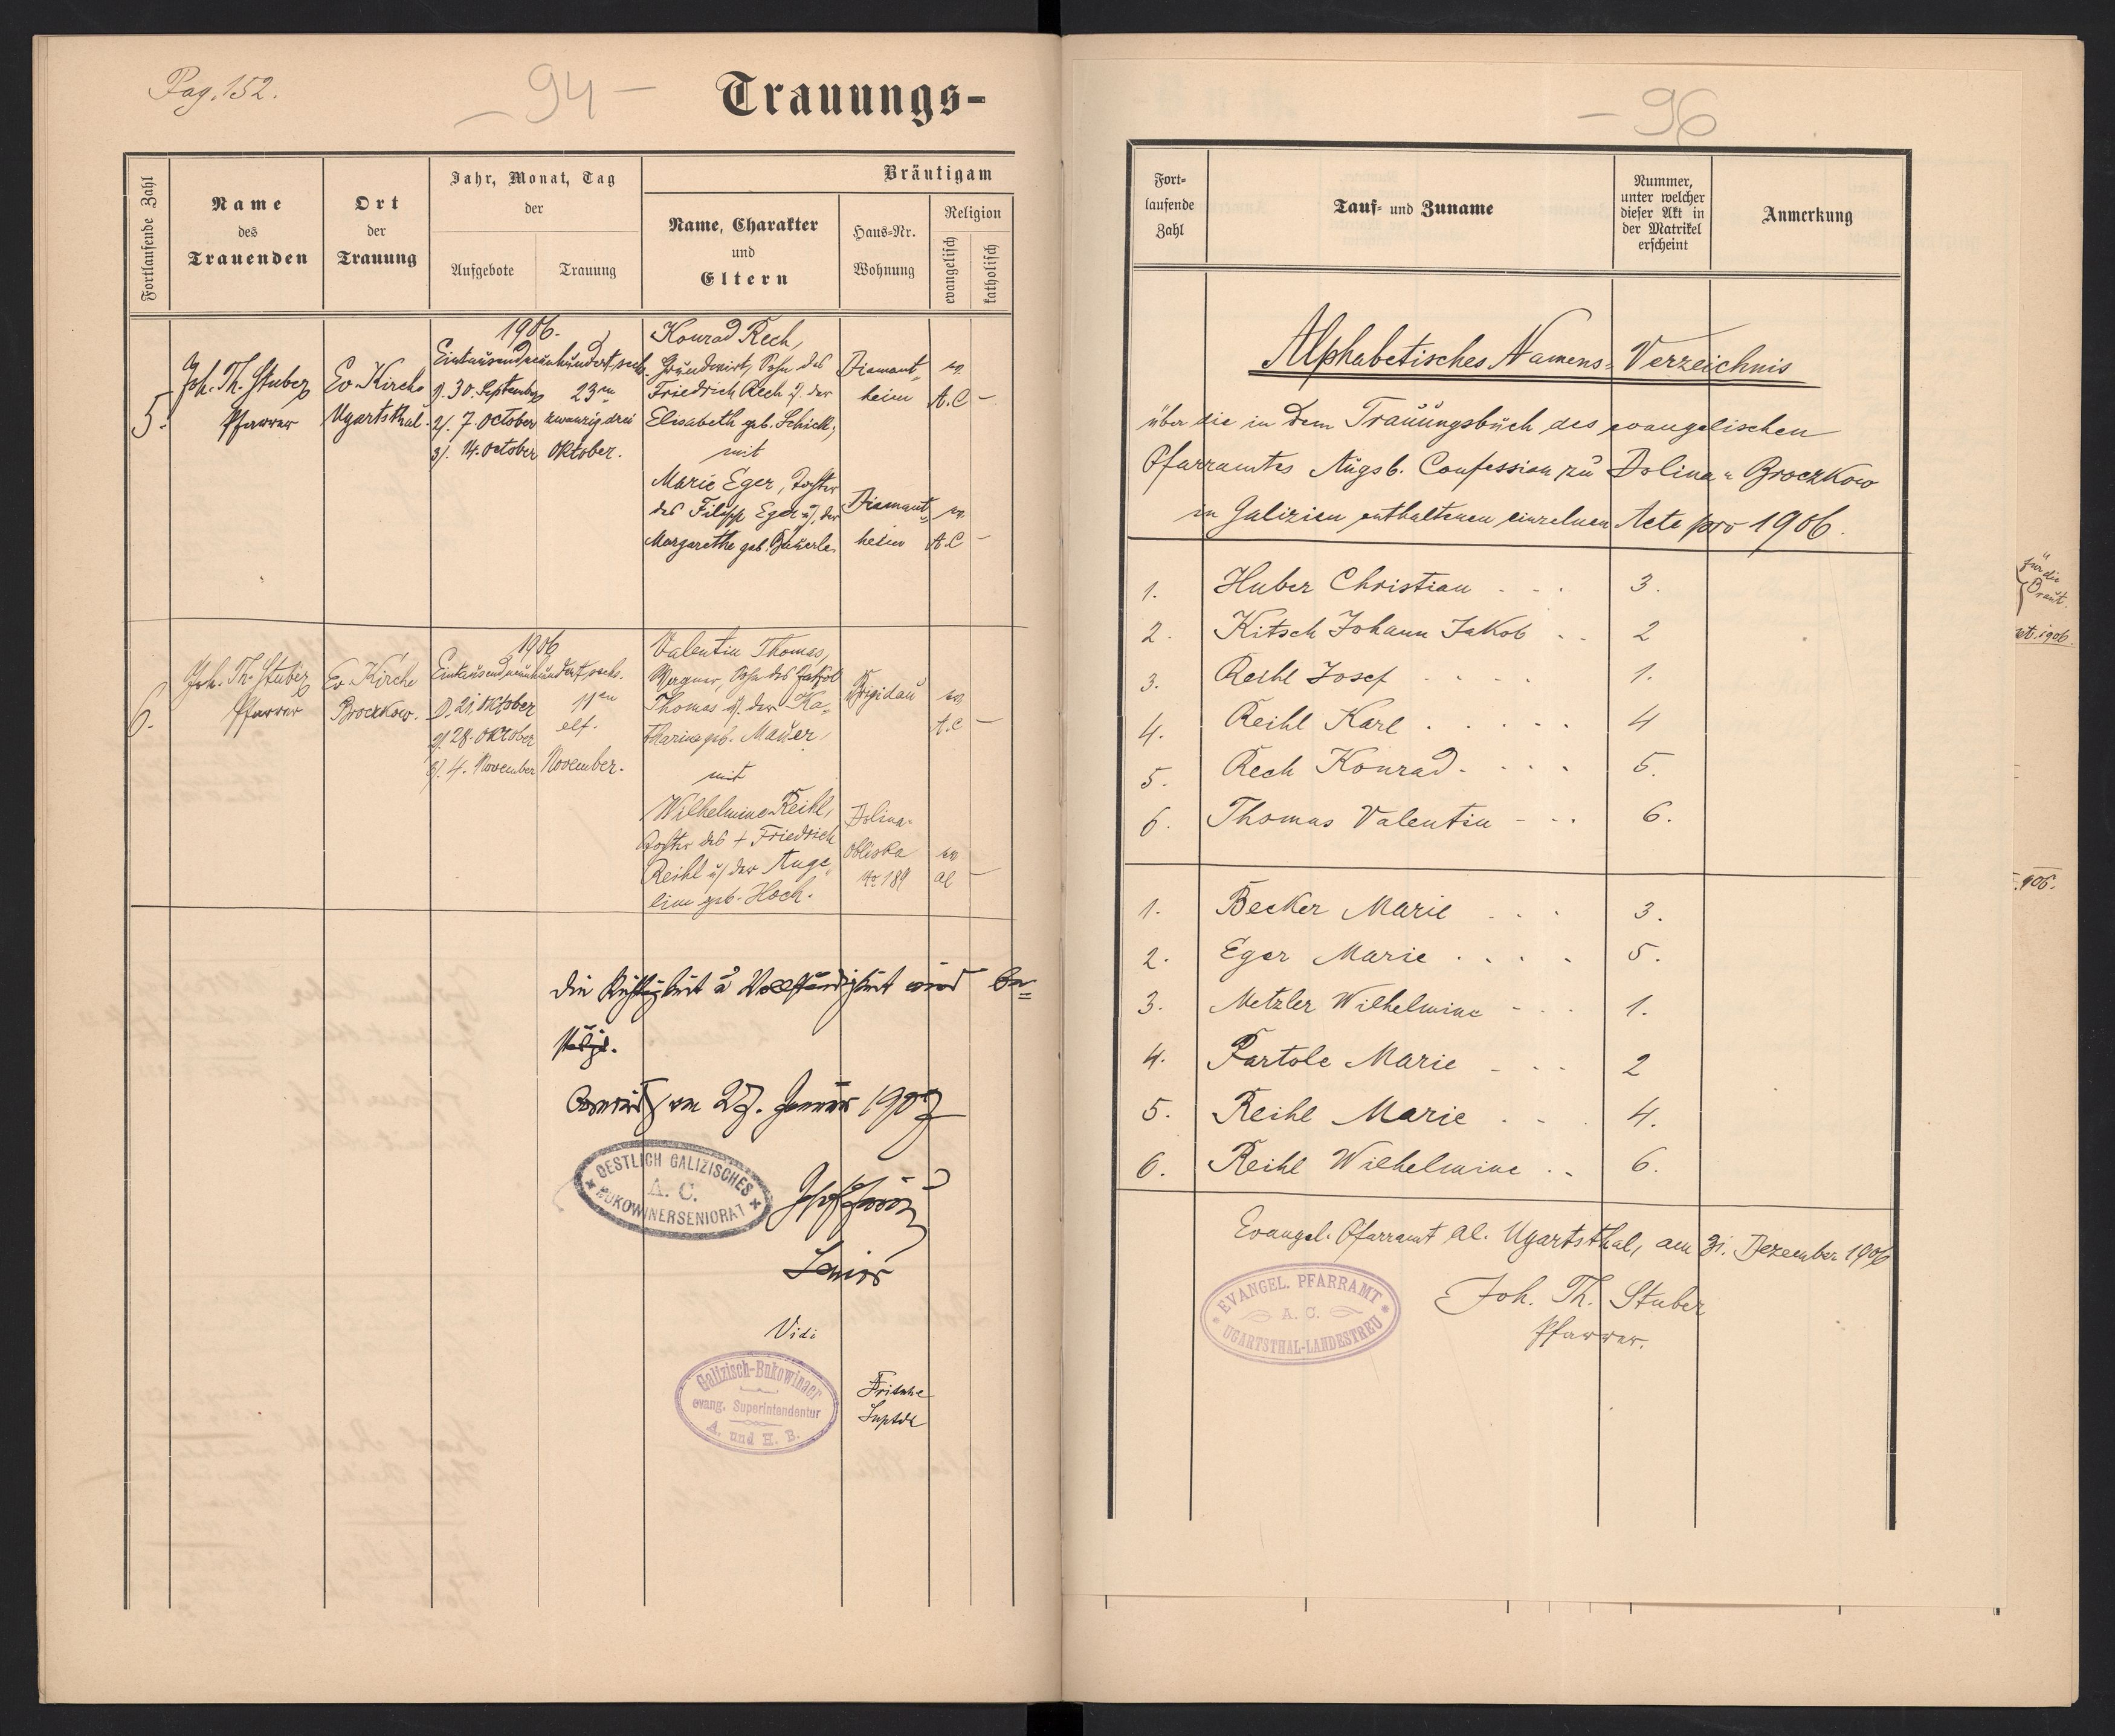 Pag. 152.
– 94 –
Trauungs-
Fortlaufende Zahl
Name
des
Trauenden
Ort
der
Trauung
Jahr, Monat, Tag
der
Aufgebote
Trauung
Bräutigam
Name, Charakter
und
Eltern
Haus-Nr.
Wohnung
Religion
evangelisch
katholisch
5.
Joh. Th. Stuber
Pfarrer
Ev. Kirche
Ugartsthal.
1906.
Eintausendneunhundertsechs.
1). 30. September
2). 7. October
3). 14. October
23en
zwanzigdrei
Oktober.
Konrad Rech,
Grundwirt, Sohn des
Friedrich Rech u. der
Elisabeth geb. Schick,
mit
Marie Eger, Tochter
des Filipp Eger u. der
Margarethe geb. Bäuerle.
Diamant-
heim
ev.
A.C –
Diamant-
heim
ev.
A.C –
6.
Joh. Th. Stuber
Pfarrer
Ev. Kirche
Broczkow.
1906
Eintausendneunhundertsechs.
1). 21. Oktober
2). 28. Oktober
3). 4. November
11en
elf.
November.
Valentin Thomas,
Wagner, Sohn des Jakob
Thomas u. der Ka-
tharina geb. Mauer,
mit
Wilhelmine Reihl,
Tochter des + Friedrich
Reihl u. der Ange-
lina geb. Hoch.
Brigidau
ev.
A.C –
Dolina-
Obliska
No 189
ev.
AC –
Die Richtigkeit u Vollständigkeit wird be-
stätigt.
am 27. Januar 1907
OESTLICH GALIZISCHES
A. C.
BUKOWINERSENIORAT
Senior
Vidi
Galizisch-Bukowinaer
evang. Superintendentur
A. und H. B.
Fritsche
Suptdt
– 96
Fort-
laufende
Zahl
Tauf- und Zuname
Nummer,
unter welcher
dieser Akt in
der Matrikel
erscheint
Anmerkung
Alphabetisches Namens-Verzeichnis
über die in dem Trauungsbuch des evangelischen
Pfarramtes Augsb. Confession zu Dolina-Broczkow
in Galizien enthaltenen einzelnen Acte pro 1906.
1. Huber Christian . . . 3.
2. Kitsch Johann Jakob . . 2
3. Reihl Josef . . . . 1.
4. Reihl Karl . . . . . 4
5. Rech Konrad . . . . 5.
6. Thomas Valentin . . . 6.
1. Becker Marie . . . 3.
2. Eger Marie . . . . 5.
3. Metzler Wilhelmine . . . 1.
4. Partole Marie . . . 2
5. Reihl Marie . . . 4.
6. Reihl Wilhelmine . . 6.
Evangel. Pfarramt AC. Ugartsthal, am 31. Dezember 1906
EVANGEL. PFARRAMT
A. C.
UGARTSTHAL-LANDESTREU
Joh. Th. Stuber
Pfarrer.
für die
Braut.
1906.
906.